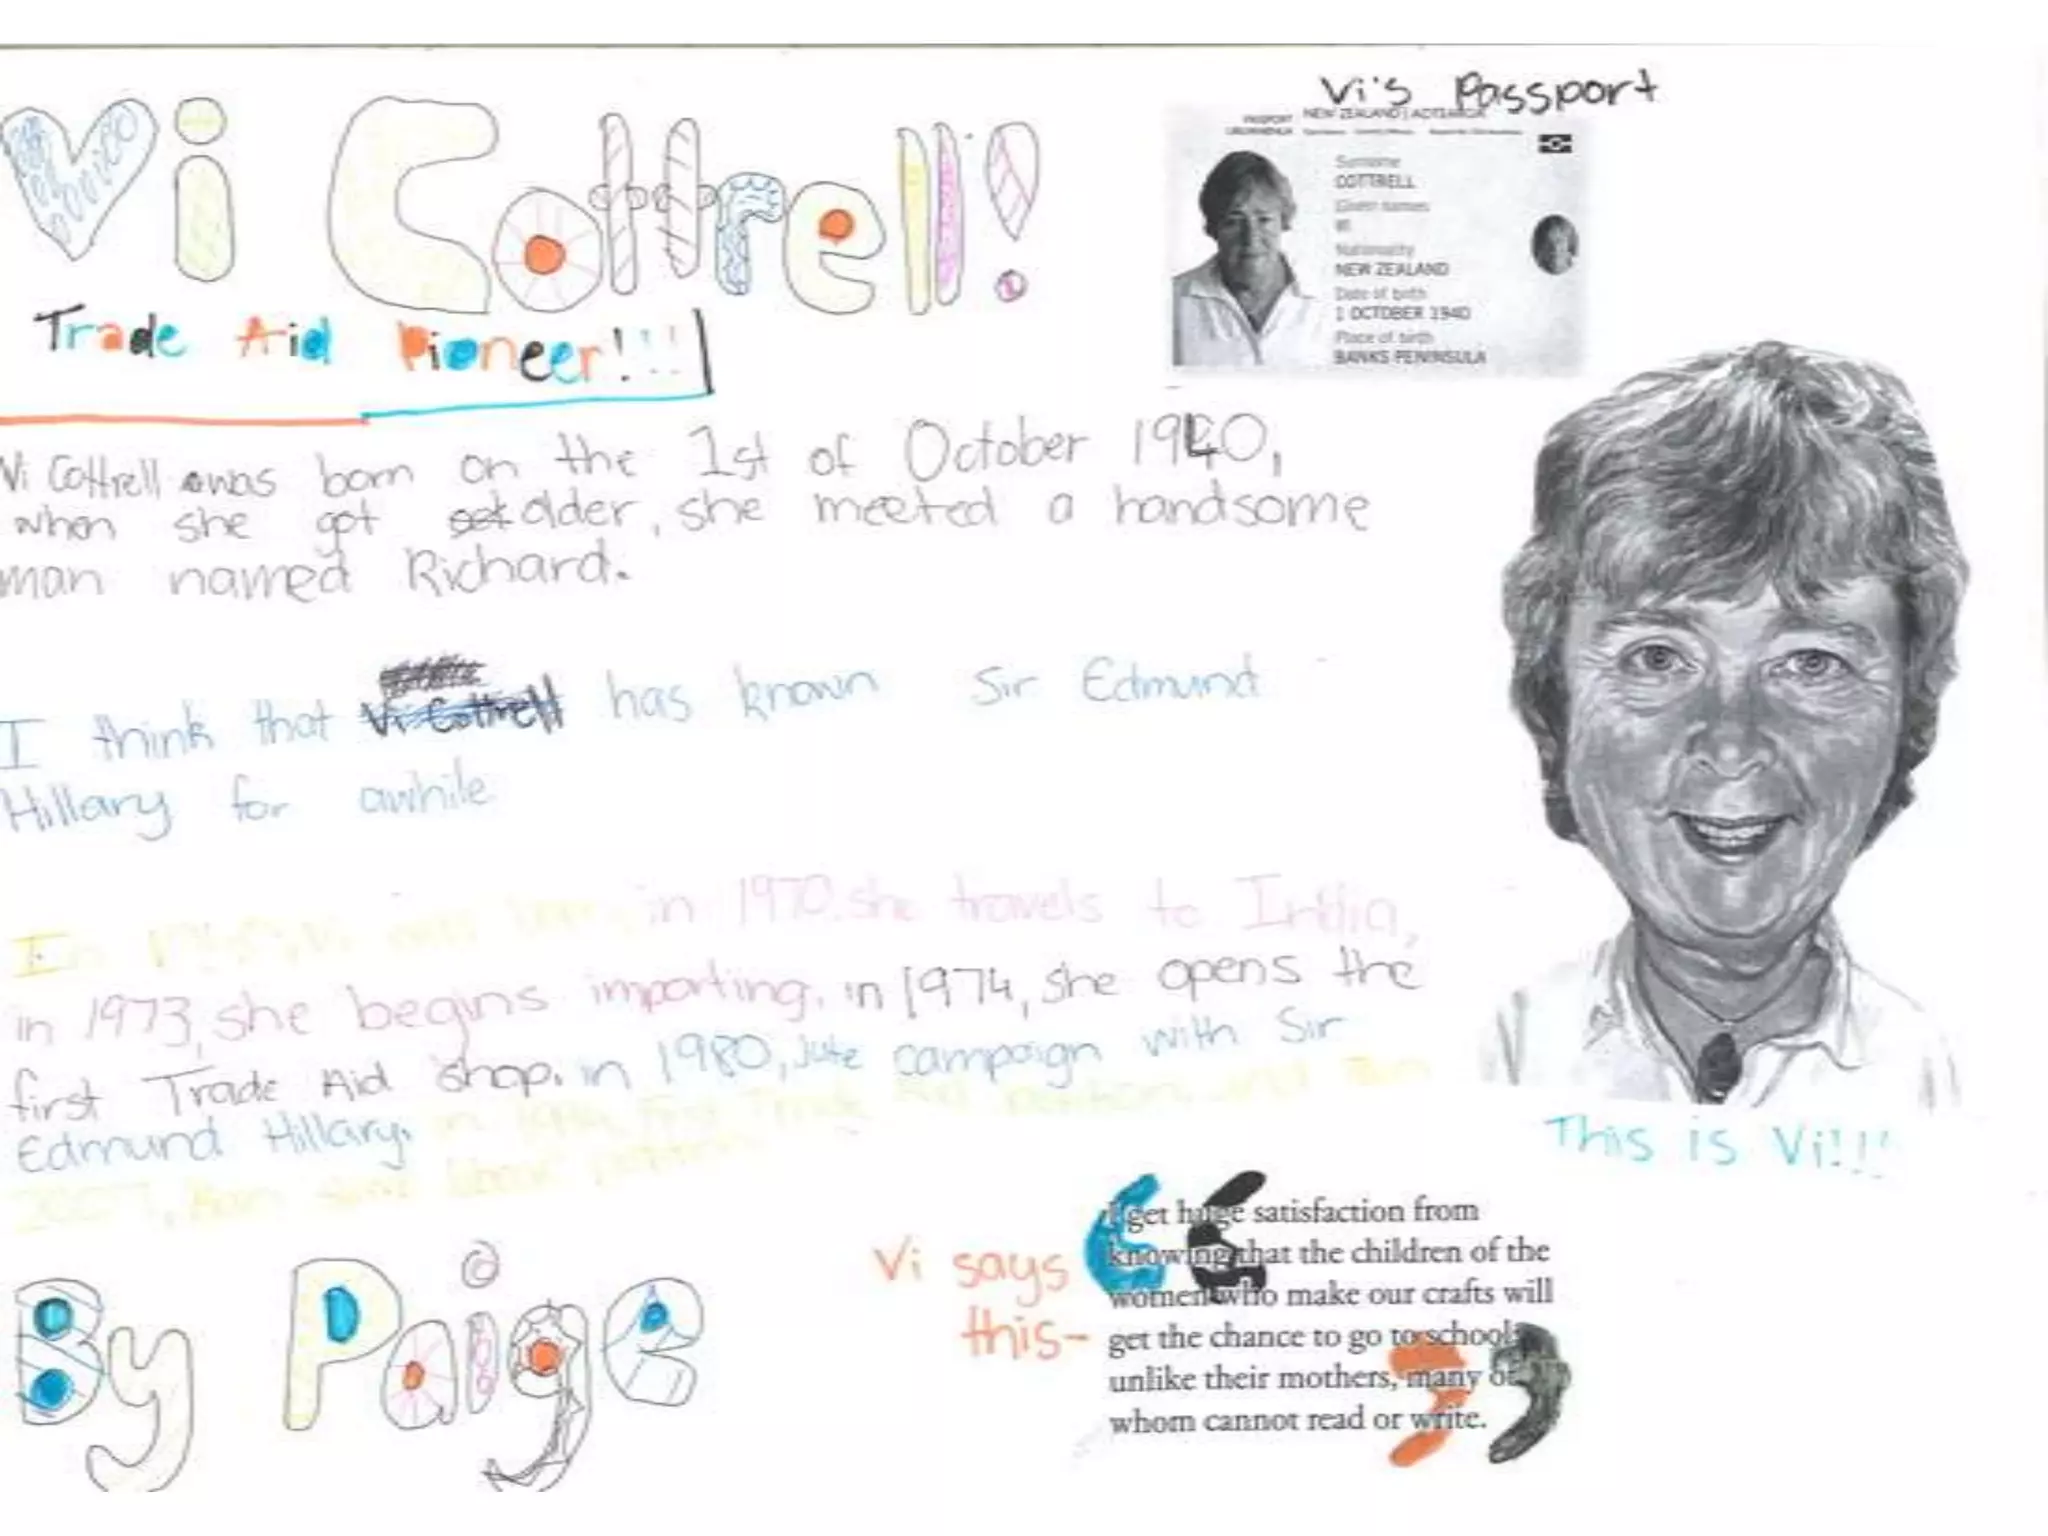 Vi Cottrell!
Trade Aid Pioneer!!!
Vi's Passport
PASSPORT
NEW ZEALAND | AOTEAROA
Surname
COTTRELL
Given names
VI
Nationality
NEW ZEALAND
Date of birth
1 OCTOBER 1940
Place of birth
BANKS PENINSULA
Vi Cottrell was born on the 1st of October 1940,
when she got older, she meeted a handsome
man named Richard.
I think that Vi Cottrell has known Sir Edmund
Hillary for awhile
In Vi was born, in 1970, she travels to India,
in 1973, she begins importing. in 1974, she opens the
first Trade Aid shop. in 1980, Jute campaign with Sir
Edmund Hillary. in first Trade Aid
2007,
This is Vi!!!
Vi says
this-
I get huge satisfaction from
knowing that the children of the
women who make our crafts will
get the chance to go to school,
unlike their mothers, many of
whom cannot read or write.
By Paige